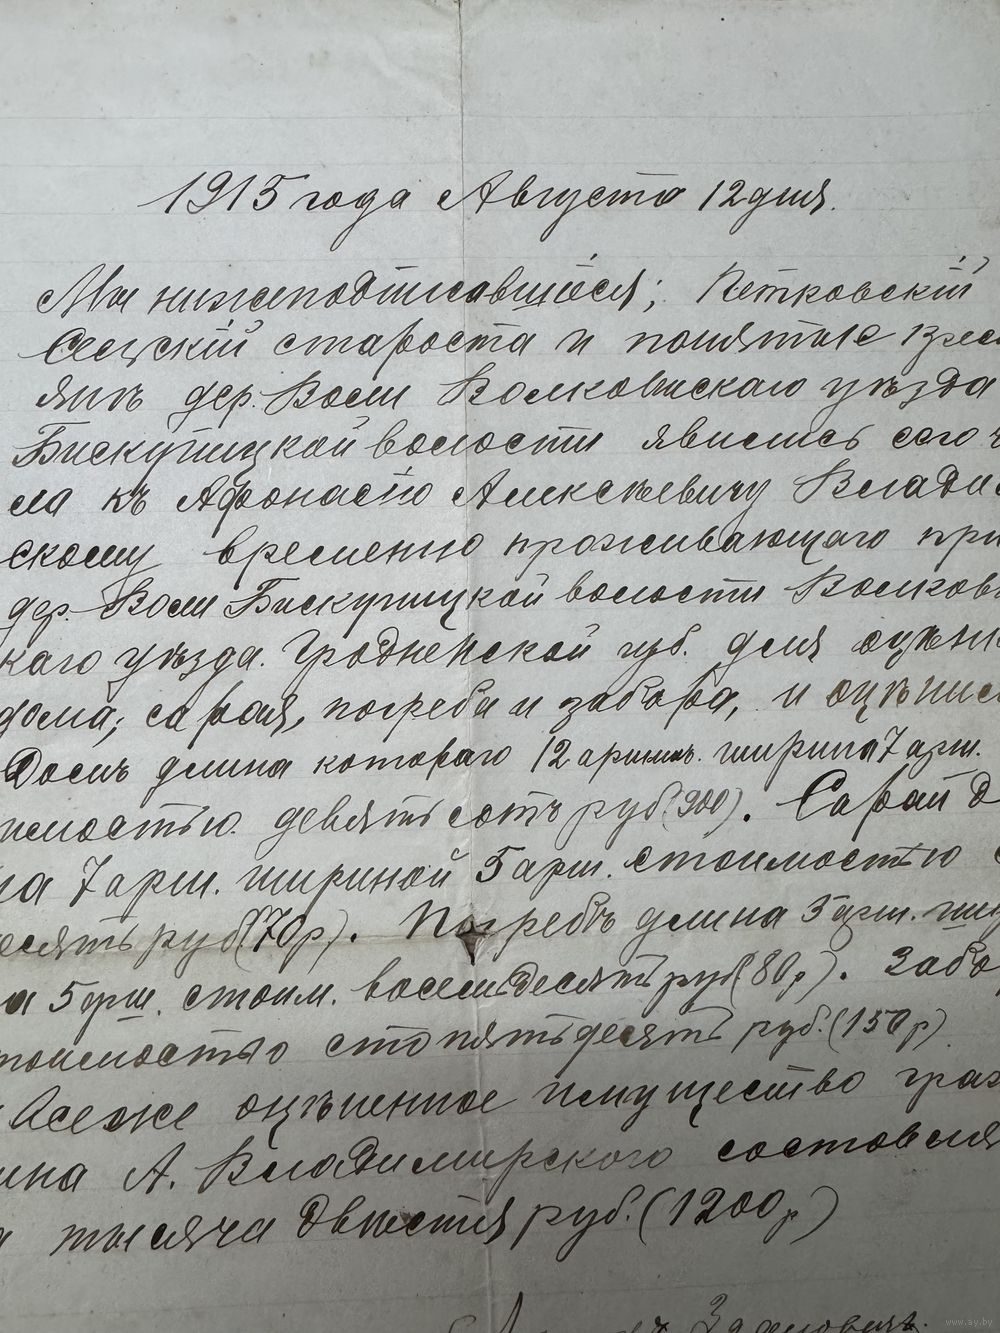 1915 года Августа 12 дня.
Мы нижеподписавшіеся; Петковскій
Сельскій староста и понятые крес
янъ дер. Воли Волковыскаго уѣзда
Бискупицкой волости явились сего ч
ла къ Афонасію Алексѣевичу Влади
скому временно проживающаго при
дер. Воли Бискупицкой волости Волковы
каго уѣзда. Гродненской губ. для оцѣнк
дома, сарая, погреба и забора, и оцѣнил
Домъ длина котораго 12 аршинъ. ширина 7 арш.
имостью девятьсотъ руб (900). Сарай д
на 7 арш. шириной 5 арш. стоимостью с
десять руб (70 р). Погребъ длина 5 арш. ши
на 5 арш. стоим. восемьдесятъ руб (80 р). Забо
тоимостью стопятьдесятъ руб. (150 р)
Все же оцѣненное имущество граж
ина А. Владимирского составля
тысяча двѣстя руб. (1200 р)
www.ay.by